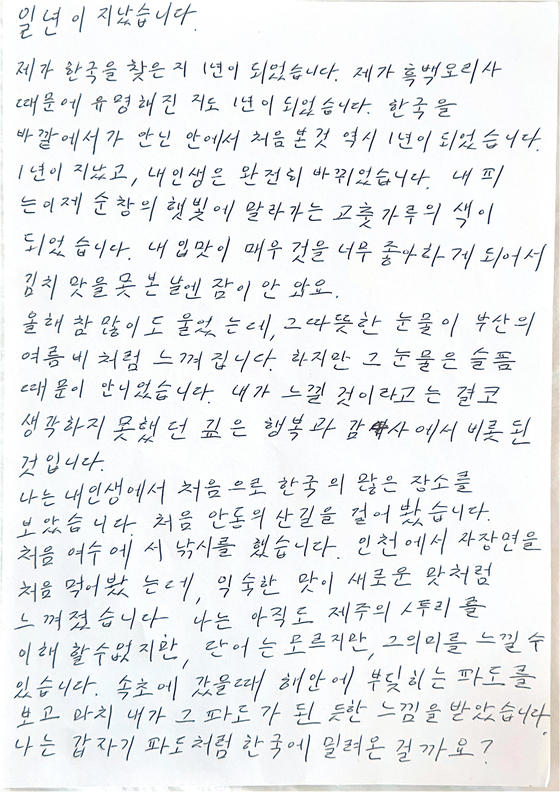 일년이 지났습니다.
제가 한국을 찾은지 1년이 되었습니다. 제가 흑백요리사
때문에 유명해진 지도 1년이 되었습니다. 한국을
바깥에서가 안닌 안에서 처음 본것 역시 1년이 되었습니다.
1년이 지났고, 내인생은 완전히 바뀌었습니다. 내 피
는이제 순창의 햇빛에 말라가는 고춧가루의 색이
되었습니다. 내 입맛이 매우 것을 너무 좋아하게 되어서
김치 맛을 못 본 날엔 잠이 안 와요.
올해 참 많이도 울었는데, 그따뜻한 눈물이 부산의
여름비처럼 느껴집니다. 하지만 그 눈물은 슬픔
때문이 안니었습니다. 내가 느낄 것이라고는 결코
생각하지 못했던 깊은 행복과 감사에서 비롯된
것입니다.
나는 내인생에서 처음으로 한국의 많은 장소를
보았습니다. 처음 안동의 산길을 걸어봤습니다.
처음 여수에서 낚시를 했습니다. 인천에서 자장면을
처음 먹어봤는데, 익숙한 맛이 새로운 맛처럼
느껴졌습니다 나는 아직도 제주의 사투리를
이해 할수없지만, 단어는 모르지만, 그의미를 느낄 수
있습니다. 속초에 갔을때 해안에 부딪히는 파도를
보고 마치 내가 그 파도가 된 듯한 느낌을 받았습니다.
나는 갑자기 파도처럼 한국에 밀려온 걸까요?